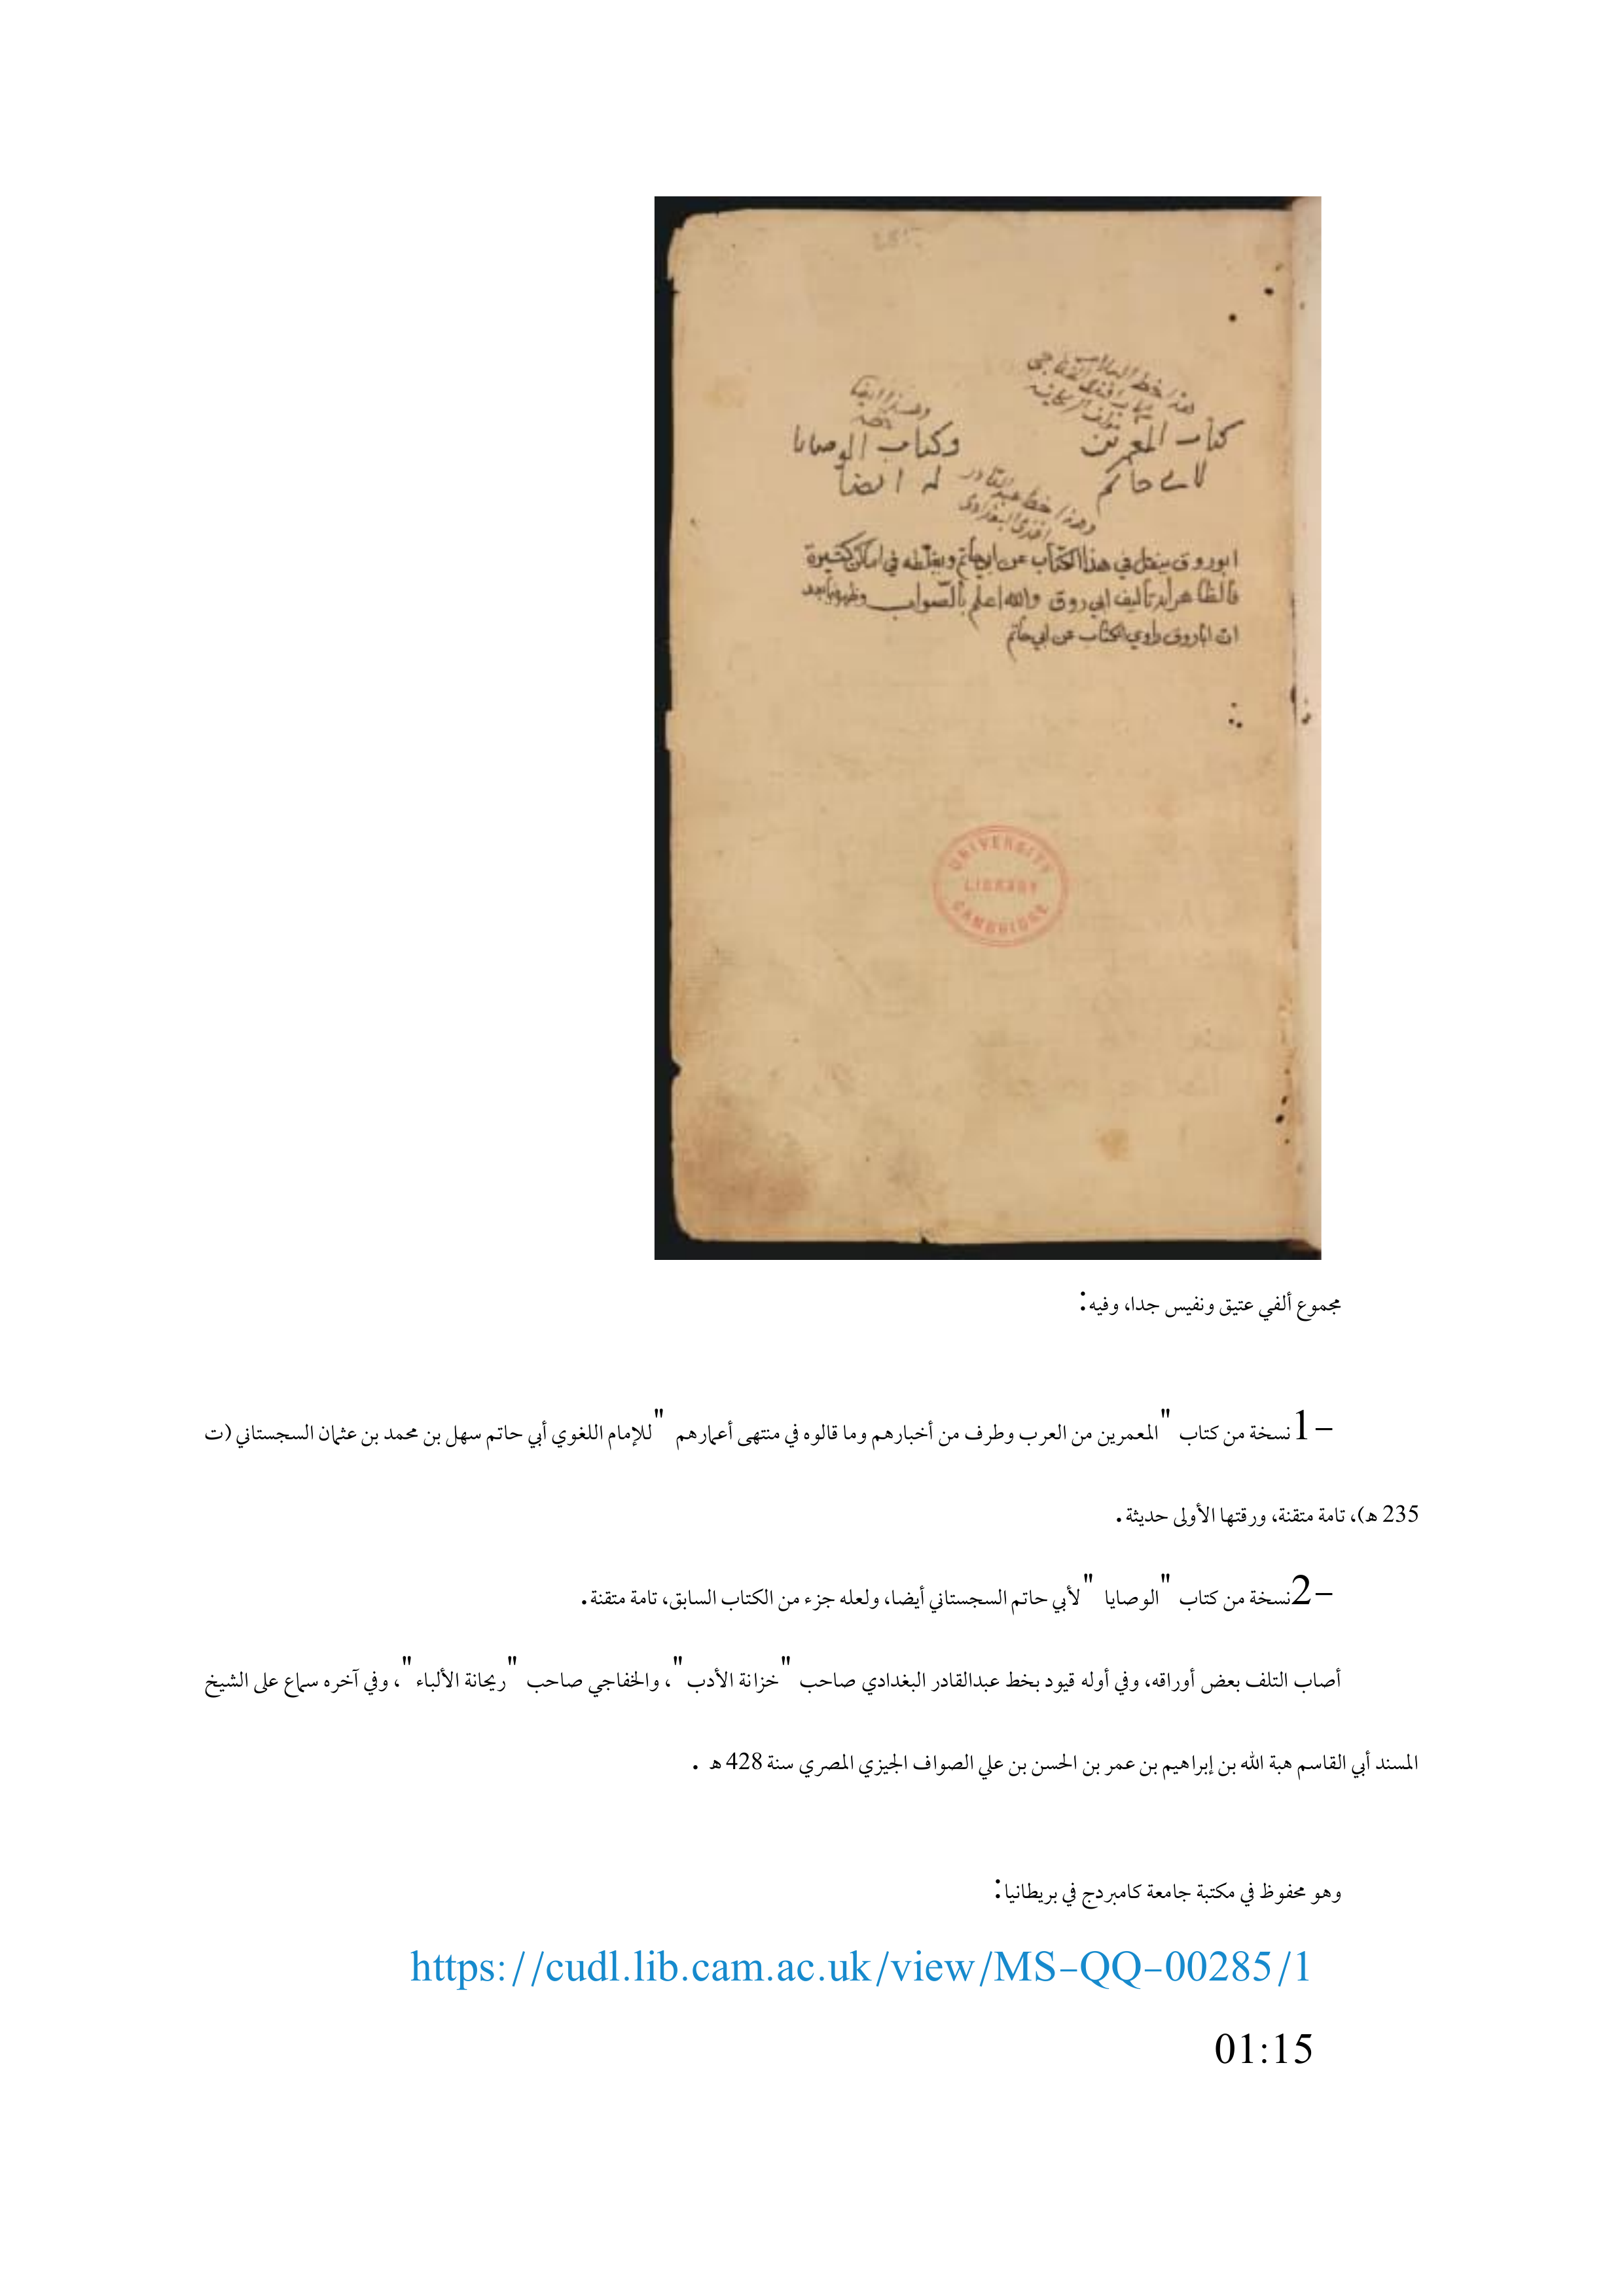 هذا خط العلامة
شهاب افندى الخفاجي
مؤلف الريحانة
وهذا ايضا
خطه
كتاب المعمرين
لابي حاتم
وكتاب الوصايا
له ايضا
وهذا خط عبد القادر
افندى البغدادى
ابوروق ينقل في هذا الكتاب عن ابي حاتم ويغلطه في اماكن كثيرة
فالظاهر انه تأليف ابي روق والله اعلم بالصواب وظهر فيما بعد
ان اباروق راوي الكتاب عن ابي حاتم
UNIVERSITY
LIBRARY
CAMBRIDGE
مجموع ألفي عتيق ونفيس جدا، وفيه:
1- نسخة من كتاب "المعمرين من العرب وطرف من أخبارهم وما قالوه في منتهى أعمارهم" للإمام اللغوي أبي حاتم سهل بن محمد بن عثمان السجستاني (ت
235 هـ)، تامة متقنة، ورقتها الأولى حديثة.
2- نسخة من كتاب "الوصايا" لأبي حاتم السجستاني أيضا، ولعله جزء من الكتاب السابق، تامة متقنة.
أصاب التلف بعض أوراقه، وفي أوله قيود بخط عبدالقادر البغدادي صاحب "خزانة الأدب"، والخفاجي صاحب "ريحانة الألباء"، وفي آخره سماع على الشيخ
المسند أبي القاسم هبة الله بن إبراهيم بن عمر بن الحسن بن علي الصواف الجيزي المصري سنة 428 هـ .
وهو محفوظ في مكتبة جامعة كامبردج في بريطانيا:
https://cudl.lib.cam.ac.uk/view/MS-QQ-00285/1
01:15